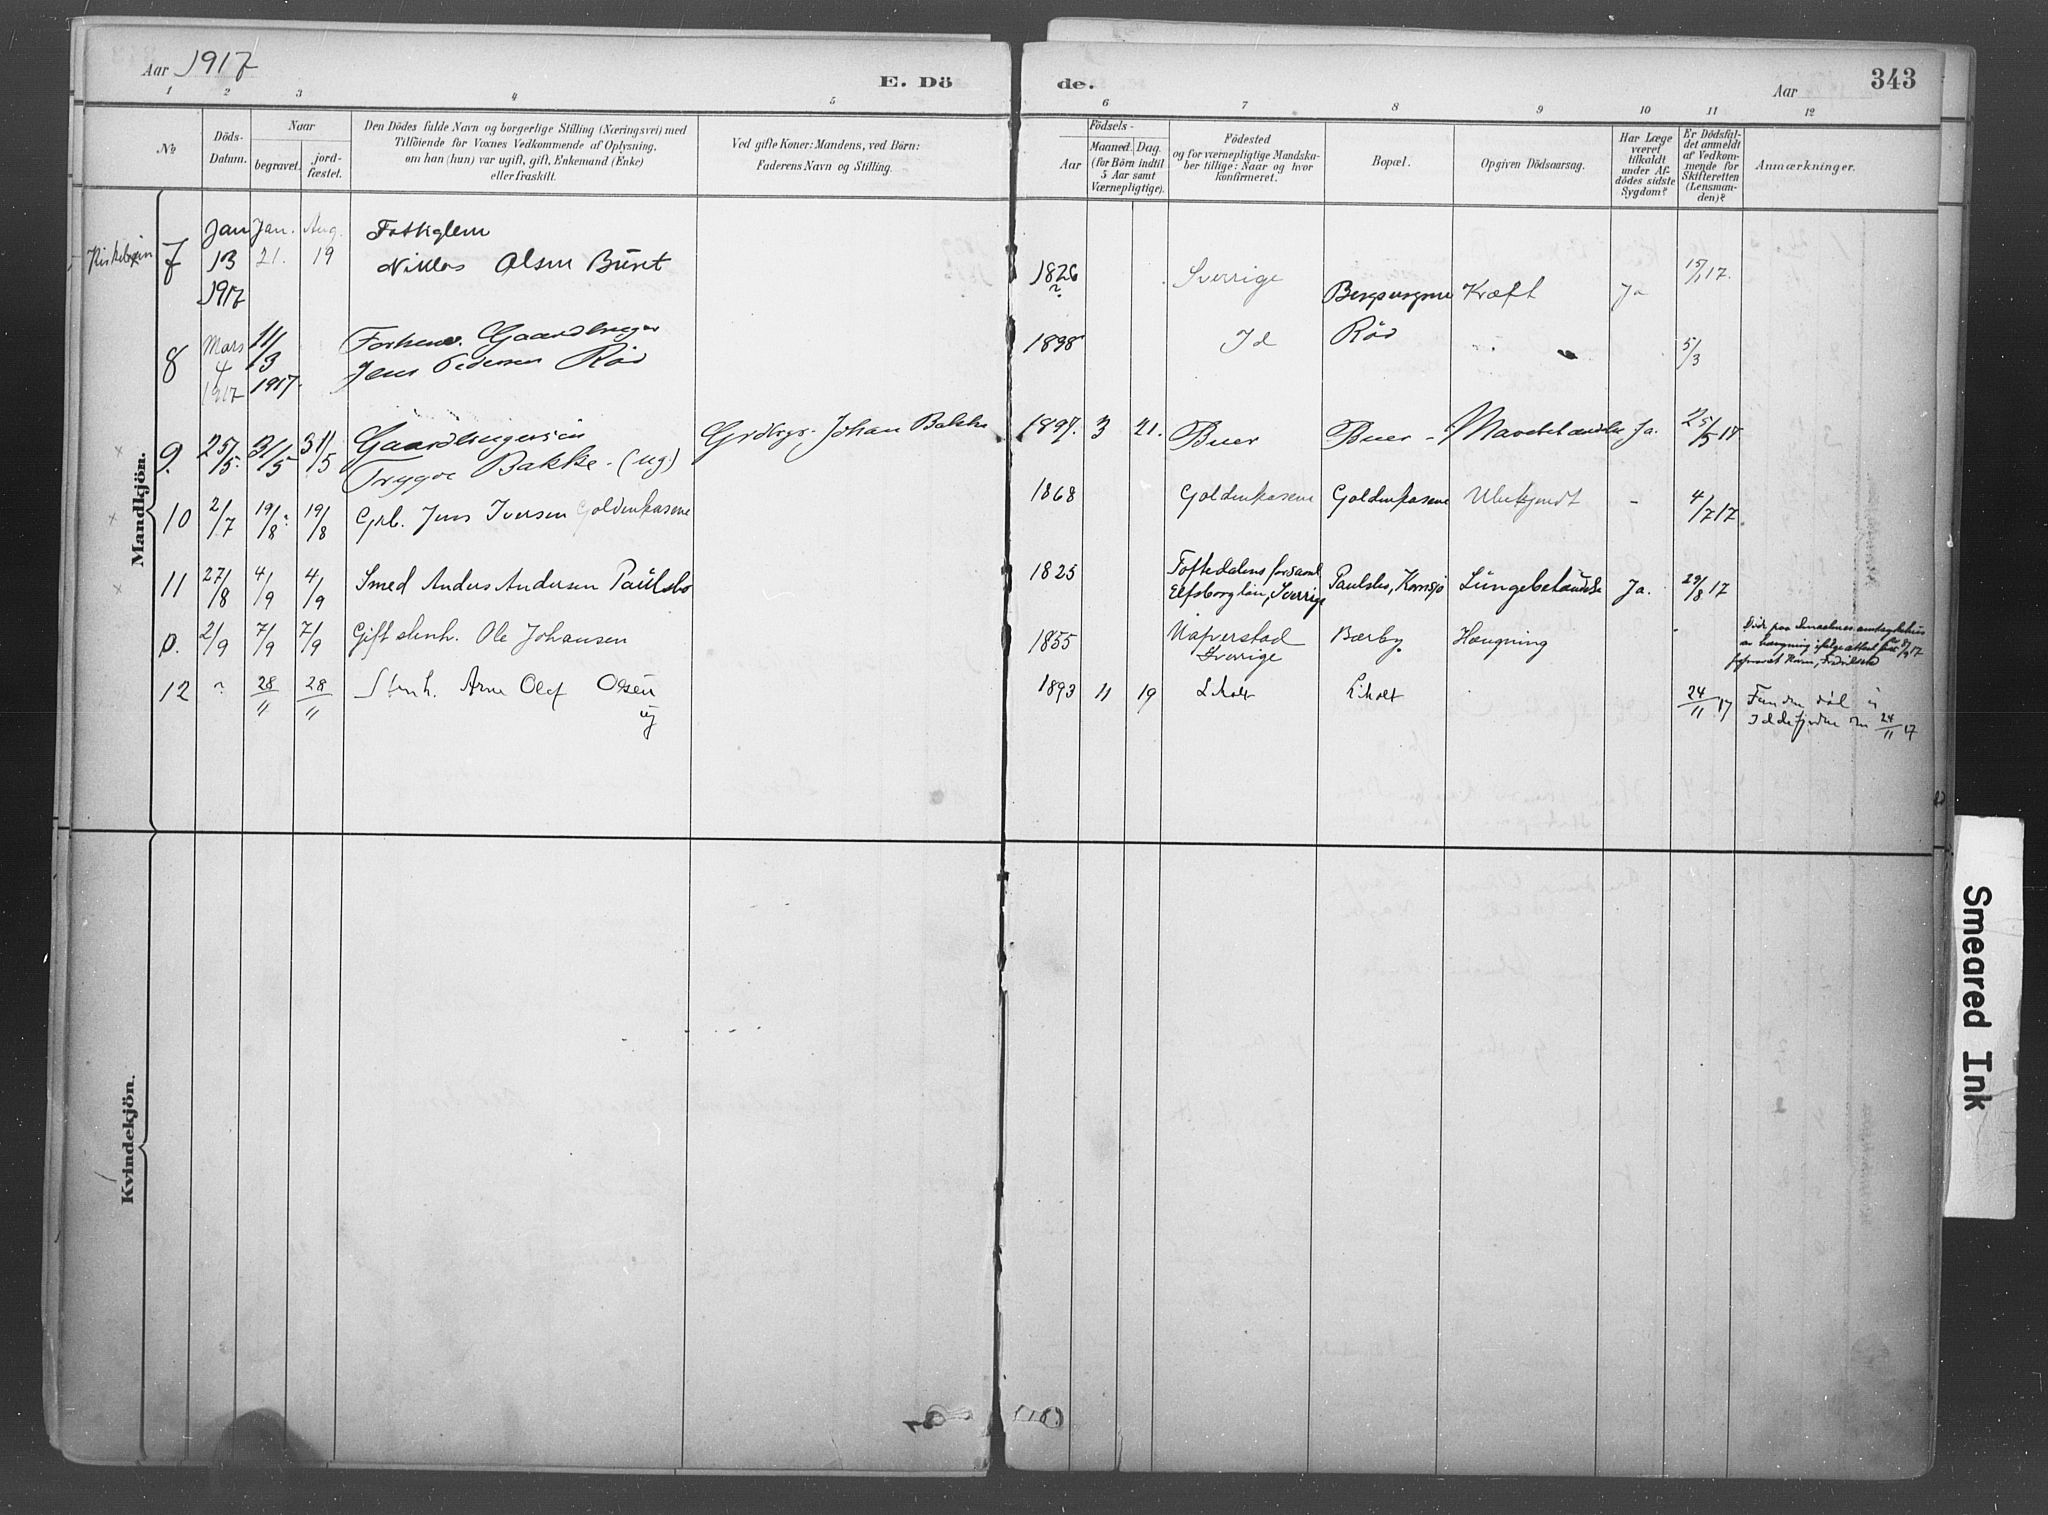 Aar 1917
E. Dö
de.
Aar
343
1 2 3 4 5 6 7 8 9 10 11 12
No
Döds-
Datum.
Naar
begravet.
jord-
fæstet.
Den Dödes fulde Navn og borgerlige Stilling (Næringsvei) med
Tilföiende for Voxnes Vedkommende af Oplysning,
om han (hun) var ugift, gift, Enkemand (Enke)
eller fraskilt.
Ved gifte Koner: Mandens, ved Börn:
Faderens Navn og Stilling.
Födsels-
Aar
Maaned.
Dag.
(for Börn indtil
5 Aar samt
Værnepligtige).
Födested
og for værnepligtige Mandska-
ber tillige: Naar og hvor
konfirmeret.
Bopæl.
Opgiven Dödsaarsag.
Har Læge
været
tilkaldt
under Af-
dödes sidste
Sygdom?
Er Dödsfal-
det anmeldt
af Vedkom-
mende for
Skifteretten
(Lensman-
den)?
Anmærkninger.
Mandkjön.
7 Jan 13 1917 Jan. 21. Aug. 19
Niklas Olsen Buret 1826 ? Sverrige Kræft Ja 15/1 17.
8 Mars 4 1917 11/3 1917. Gaardbruger
Jens Pedersen Röd 1898 Id Röd 5/3
9. 25/5. 31/5 31/5 Gaardbrugersön
Trygve Bakke - (ug.) Grdbgr. Johan Bakke 1897. 3 21. Buer Buer Ja. 25/5 17
10 2/7 19/8 19/8 Grb. Jens Iversen Goldenkasene 1868 Goldenkasene Goldenkasene Ubekjendt - 4/7 17
11 27/8 4/9 4/9 Smed Anders Andersen Paulsbo 1825 Toftedalens forsaml.
Elfsborg län, Sverrige Paulsbo, Kornsjö Lungebetændelse Ja. 29/8 17
0. 2/9 7/9 7/9 Gift stenh. Ole Johansen 1855 Naverstad
Sverrige Bærby Hængning
12 ? 28/11 28/11 Stenh. Arne Olaf Olsen
ug 1893 11 19 Liholt Liholt 24/11 17 Funden död i
Iddefjorden den 24/11 17
Kvindekjön.
Smeared Ink